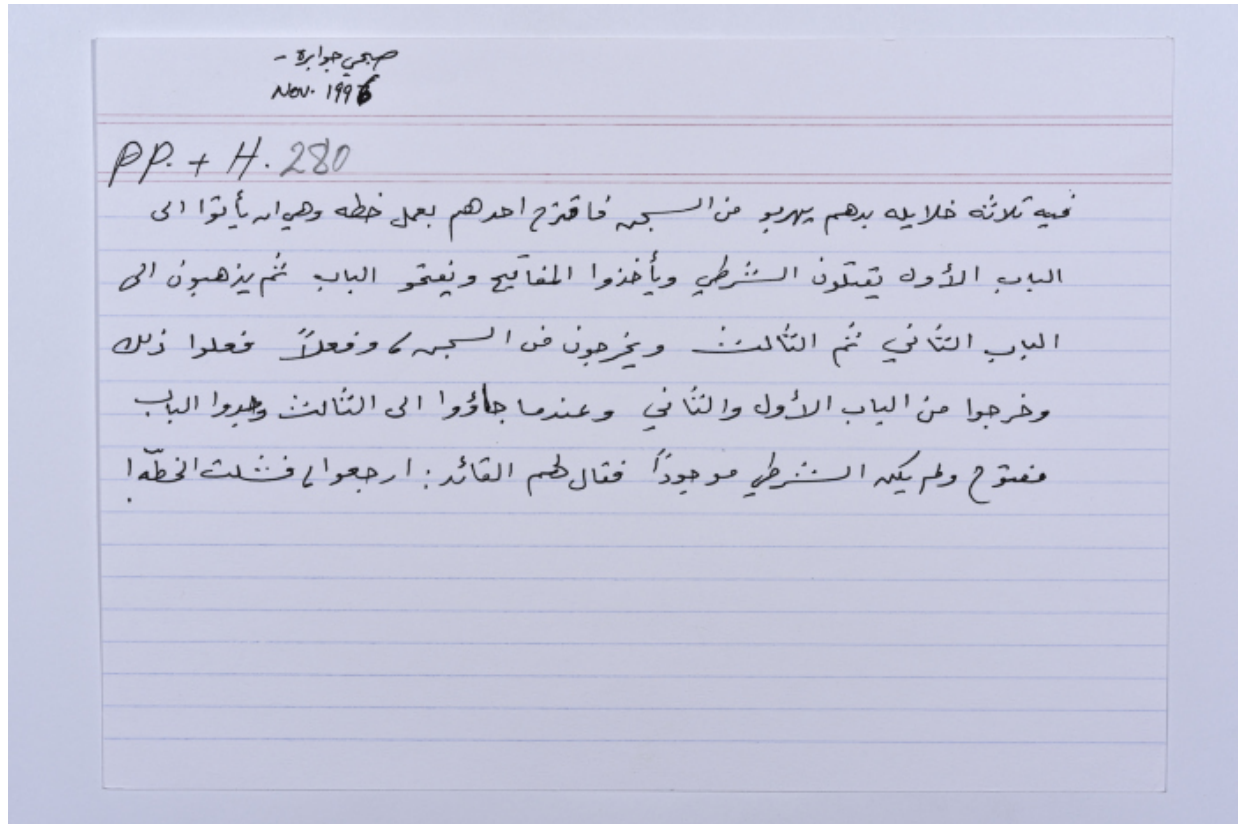 صبحي جوابرة -
Nov. 1996
PP. + H. 280
فيه ثلاثه خلايله بدهم يهربو من السجن فاقترح احدهم بعمل خطه وهي ان يأتوا الى
الباب الأول يقتلون الشرطي ويأخذوا المفاتيح ويفتحو الباب ثم يذهبون الى
الباب الثاني ثم الثالث ويخرجون من السجن، وفعلاً فعلوا ذلك
وخرجوا من الباب الأول والثاني وعندما جاؤوا الى الثالث وجدوا الباب
مفتوح ولم يكن الشرطي موجوداً فقال لهم القائد: ارجعوا، فشلت الخطّه!